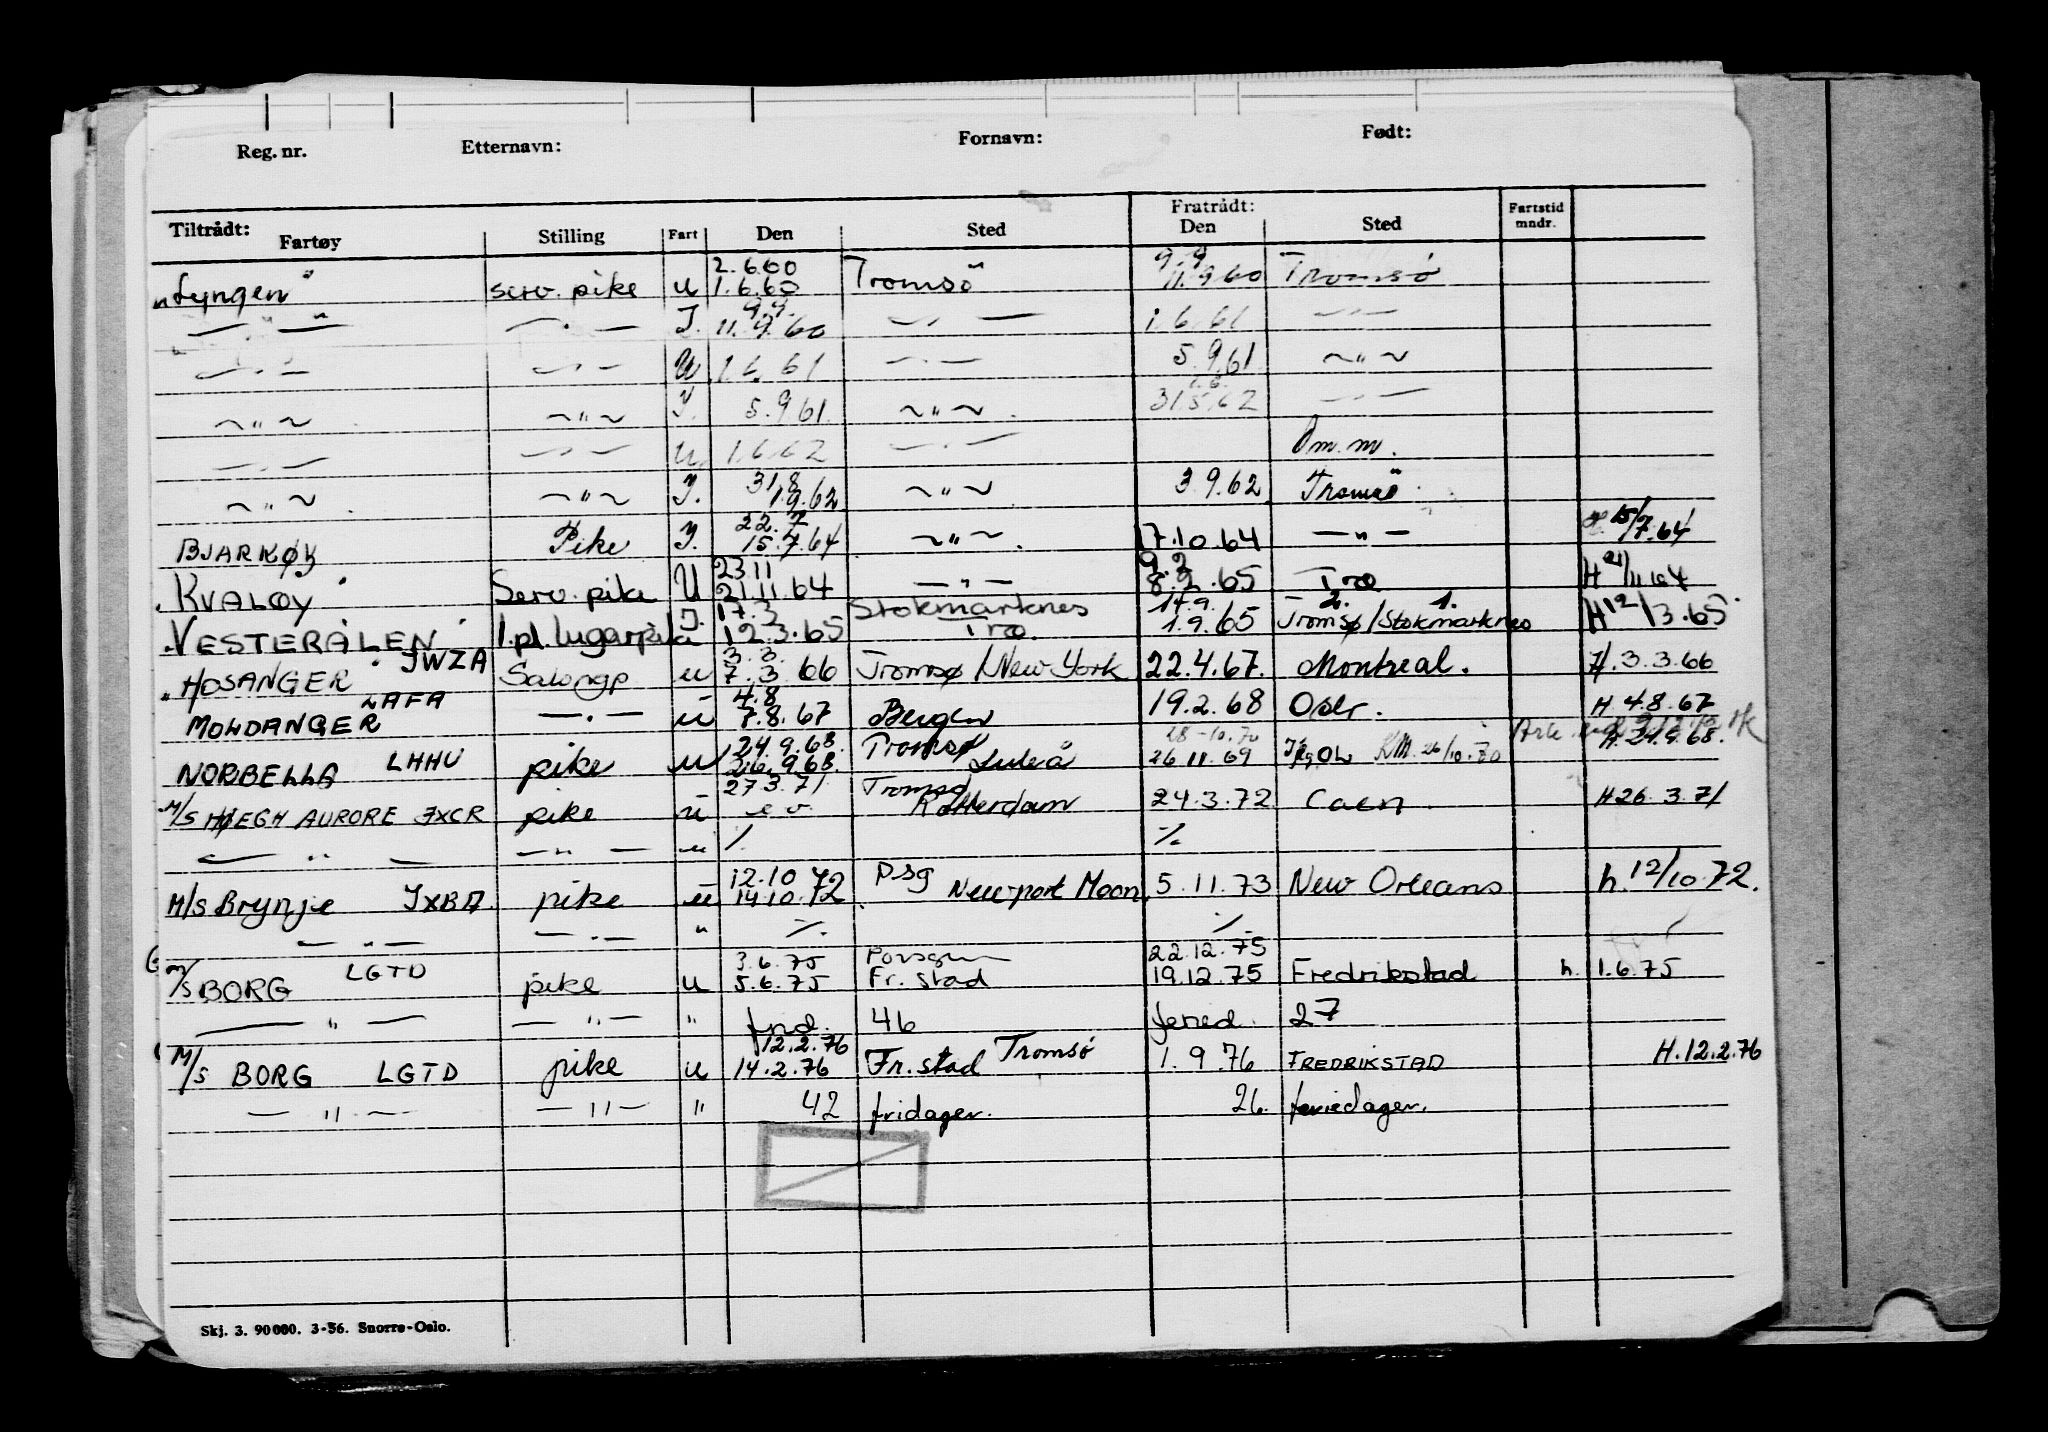 Reg. nr. Etternavn: Fornavn: Født:
Tiltrådt: Fartøy Stilling Fart Den Sted Fratrådt: Den Sted Fartstid mndr.
2.6.60 9.9
"Lyngen" serv. pike U 1.6.60 Tromsö 11.9.60 Tromsö
9.9.
— " — — " — I. 11.9.60 — " — 1.6.61 — " —
— " — — " — U 1.6.61 — " — 5.9.61 — " —
1.6.
— " — — " — I. 5.9.61. — " — 31.5.62 — " —
— " — — " — U 1.6.62 — " — Om.m.
31.8
— " — — " — I. 1.9.62 — " — 3.9.62 Tromsö
22.7
BJARKØY Pike I. 15.7.64 — " — 17.10.64 — " — 15/7.64
23.11 9.2
"KVALØY" Serv. pike U 21.11.64 — " — 8.2.65 Tro H 21/11 64
17.3 Stokmarknes 14.9. 2. 1.
"VESTERÅLEN" 1.pl. lugarpike I. 12.3.65 Tro. 1.9.65 Tromsø/Stokmarknes H 12/3.65
3.3.
"HOSANGER" JWZA Salongp u 7.3.66 Tromsø/New York 22.4.67. Montreal. H. 3.3.66
4.8
MOLDANGER LAFA — " — u 7.8.67 Bergen 19.2.68 Oslo. H 4.8.67
24.9.68. Tromsø 28-10.70
NORBELLA LHHV pike u 26.9.68. Luleå 26.11.69 KM. 26/10.70 H. 24.9.68.
27.3.71 Tromsø
M/S HØEGH AURORE JXCR pike u Rotterdam 24.3.72 Caen. H 26.3.71
— " — — " — " % %
12.10 72 Psg
M/S Brynje JXBA pike u 14.10.72 Newport Moon. 5.11.73 New Orleans h. 12/10.72.
— " — — " — " % %
3.6.75 22.12.75
M/S BORG LGTD pike u 5.6.75 Fr.stad 19.12.75 Fredrikstad h. 1.6.75
— " — — " — " frid. 46 feried. 27
12.2.76 Tromsö
M/S BORG LGTD pike u 14.2.76 Fr.stad 1.9.76 FREDRIKSTAD H. 12.2.76
— " — — " — " 42 fridager. 26. feriedager.
Skj. 3. 90000. 3-56. Snorre-Oslo.